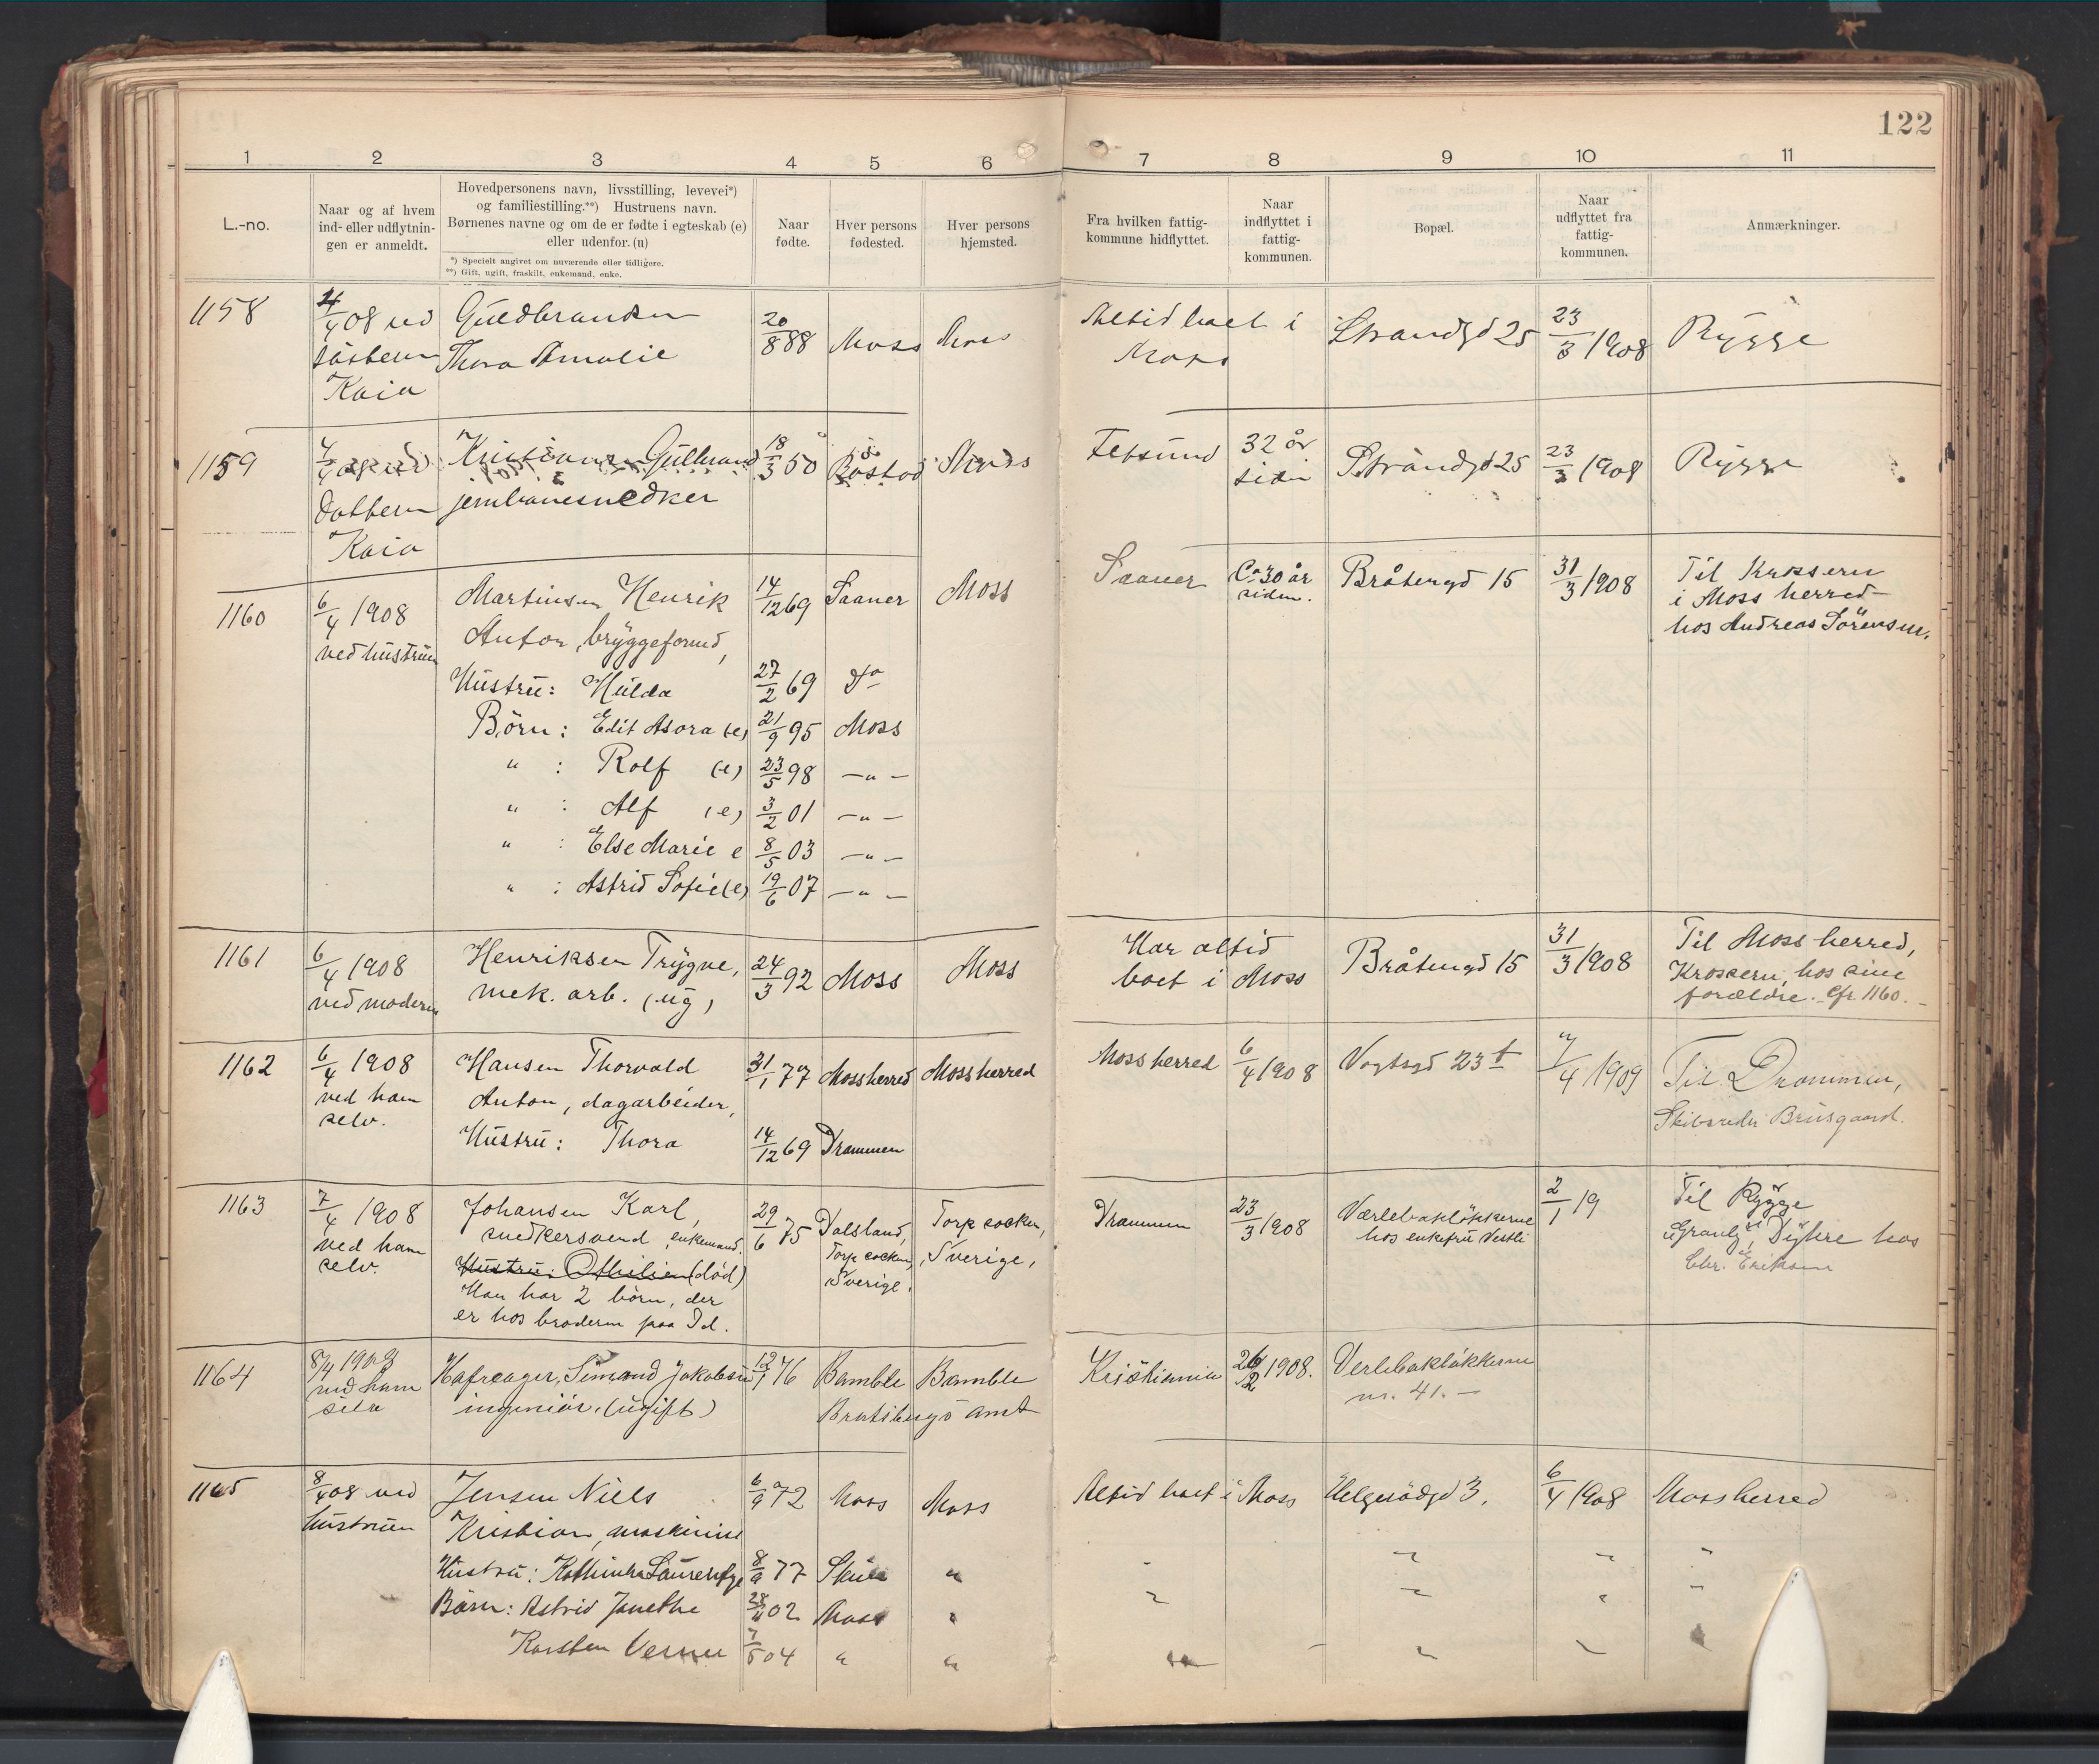 122
1 2 3 4 5 6 7 8 9 10 11
L.-no.
Naar og af hvem
ind- eller udflytnin-
gen er anmeldt.
Hovedpersonens navn, livsstilling, levevei*)
og familiestilling.**) Hustruens navn.
Børnenes navne og om de er fødte i egteskab (e)
eller udenfor. (u)
*) Specielt angivet om nuværende eller tidligere.
**) Gift, ugift, fraskilt, enkemand, enke.
Naar
fødte.
Hver persons
fødested.
Hver persons
hjemsted.
Fra hvilken fattig-
kommune hidflyttet.
Naar
indflyttet i
fattig-
kommunen.
Bopæl.
Naar
udflyttet fra
fattig-
kommunen.
Anmærkninger.
1158 4/4 08 ved Guldbrandsen 20/8 88 Moss Moss Altid boet i Strandgd 25 23/3 1908 Rygge
søsteren Thora Amalie Moss
Kaia
1159 4/4 08 ved Kristiansen Gulbrand 18/3 50 Båstad Moss Fetsund 32 år Strandgd 25 23/3 1908 Rygge
datteren jernbanesnedker siden
Kaia
1160 6/4 1908 Martinsen Henrik 14/12 69 Saaner Moss Saaner Ca 30 år Bråtengd 15 31/3 1908 Til Krossern
ved hustruen Anton, bryggeformd, siden. i Moss herred
hos Andreas Sörensen.
Hustru: Hulda 27/2 69 do
Börn: Edit Asora (e) 21/9 95 Moss
" : Rolf (e) 23/5 98 -"-
" : Alf (e) 3/2 01 -"-
" : Else Marie e 8/5 03 -"-
" : Astrid Sofie (e) 19/6 07 -"-
1161 6/4 1908 Henriksen Trygve, 24/3 92 Moss Moss Har altid Bråtengd 15 31/3 1908 Til Moss herred,
ved moderen mek. arb. (ug) boet i Moss Krossern, hos sine
forældre. Cfr 1160.
1162 6/4 1908 Hansen Thorvald 31/1 77 Mossherred Mossherred Moss herred 6/4 1908 Vogtsgd 23 t 7/4 1909 Til Drammen,
ved ham Anton, dagarbeider, Skibsreder Brusgaard.
selv.
Hustru: Thora 14/12 69 Drammen
1163 7/4 1908 Johansen Karl, 29/6 75 Dalsland, Torp socken, Drammen 23/3 1908 Værlebaklökkerne 2/1 19 Til Rygge
ved ham snedkersvend, enkemand. Torp socken, Sverige, hos enkefru Vestli Granly, Dyhre hos
selv. Hustru: Othilie (död) Sverige. Chr. Eriksen
Han har 2 börn, der
er hos broderen paa Id.
1164 8/4 1908 Hafreager, Simond Jakobsen 12/1 76 Bamble Bamble Kristiania 26/2 1908. Verlebaklökkerne
ved ham ingeniör. (ugift) Bratsbergs amt nr. 41. -
selv
1165 8/4 08 ved Jensen Niels 6/9 72 Moss Moss Altid boet i Moss Helgerödgd 3. 6/4 1908 Mossherred
hustruen Kristian, maskinist
Hustru: Kathinka Laurentze 8/9 77 Skien "
Börn: Astrid Janethe 02 Moss "
Karsten Verner 7/5 04 " "